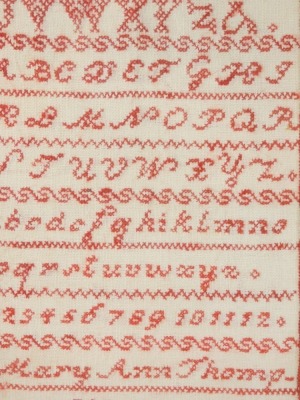 V W X Y Z &.
A B C D E F G H I
L M N O P Q R
S T U V W X Y Z.
b c d e f g h i k l m n o
q r s t u v w x y z.
3 4 5 6 7 8 9 10 11 12.
Mary Ann Thomp